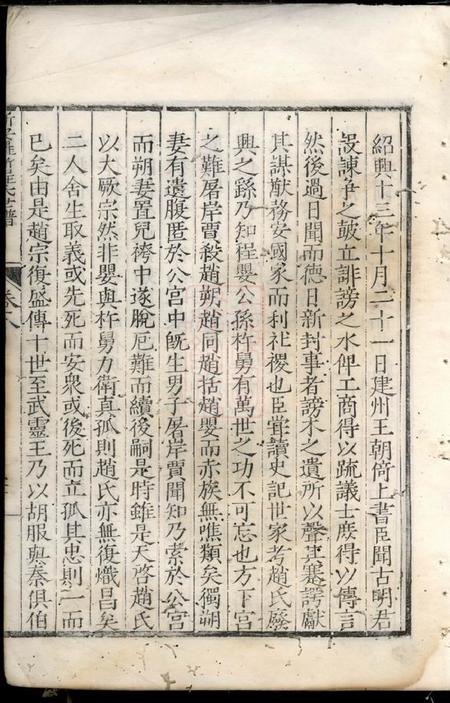 紹興十三年十月二十一日建州王朝倚上書臣聞古明君
設諫諍之皷立誹謗之木俾工商得以疏議士庶得以傳言
然後過日聞而德日新封事者謗木之遺所以聲其蹇諤獻
其謀猷務安國家而利社稷也臣甞讀史記世家考趙氏廢
興之繇乃知程嬰公孫杵臼有萬世之功不可忘也方下宮
之難屠岸賈殺趙朔趙同趙括趙嬰而亦族無噍類矣獨朔
妻有遺腹匿於公宮中旣生男子屠岸賈聞知乃索於公宮
而朔妻置兒袴中遂脫厄難而續後嗣是時雖是天啓趙氏
以大厥宗然非嬰與杵臼力衛真孤則趙氏亦無復熾昌矣
二人舍生取義或先死而安衆或後死而立孤其忠則一而
已矣由是趙宗復盛傳十世至武靈王乃以胡服與秦俱伯
卷八